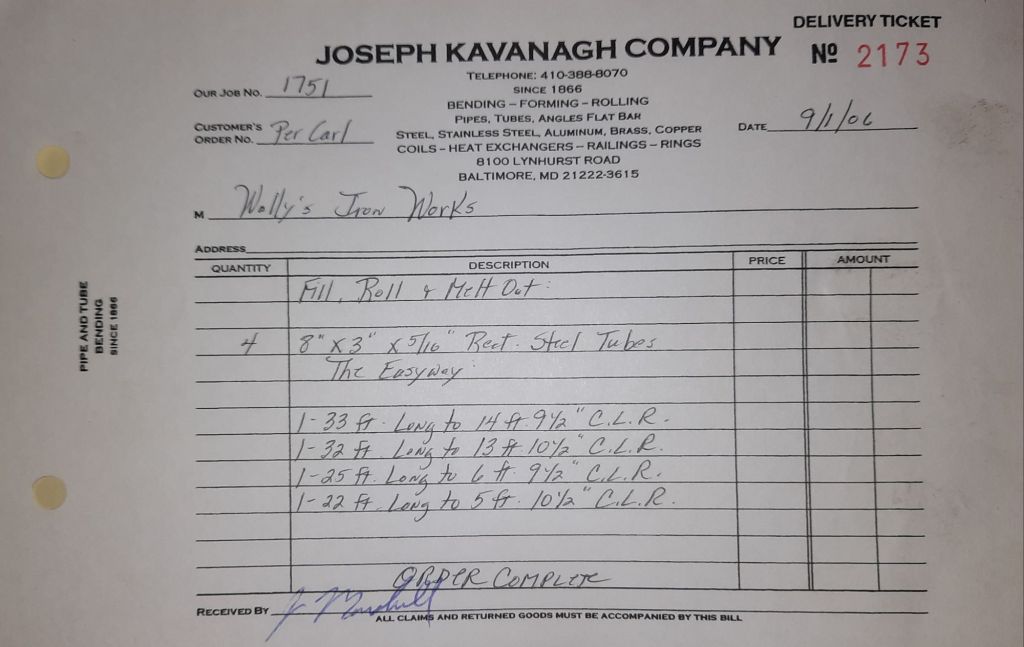 DELIVERY TICKET
JOSEPH KAVANAGH COMPANY
Nº 2173
TELEPHONE: 410-388-8070
SINCE 1866
BENDING – FORMING – ROLLING
PIPES, TUBES, ANGLES FLAT BAR
STEEL, STAINLESS STEEL, ALUMINUM, BRASS, COPPER
COILS – HEAT EXCHANGERS – RAILINGS – RINGS
8100 LYNHURST ROAD
BALTIMORE, MD 21222-3615
OUR JOB NO. 1751
CUSTOMER'S ORDER NO. Per Carl
DATE 9/1/06
M Wolly's Iron Works
ADDRESS
QUANTITY DESCRIPTION PRICE AMOUNT
Fill, Roll & Melt Out:
4 8" x 3" x 5/16" Rect. Steel Tubes
The Easyway:
1-33 ft. Long to 14 ft. 9 1/2" C.L.R.
1-32 ft. Long to 13 ft. 10 1/2" C.L.R.
1-25 ft. Long to 6 ft. 9 1/2" C.L.R.
1-22 ft. Long to 5 ft. 10 1/2" C.L.R.
ORDER COMPLETE
RECEIVED BY
ALL CLAIMS AND RETURNED GOODS MUST BE ACCOMPANIED BY THIS BILL
PIPE AND TUBE
BENDING
SINCE 1866